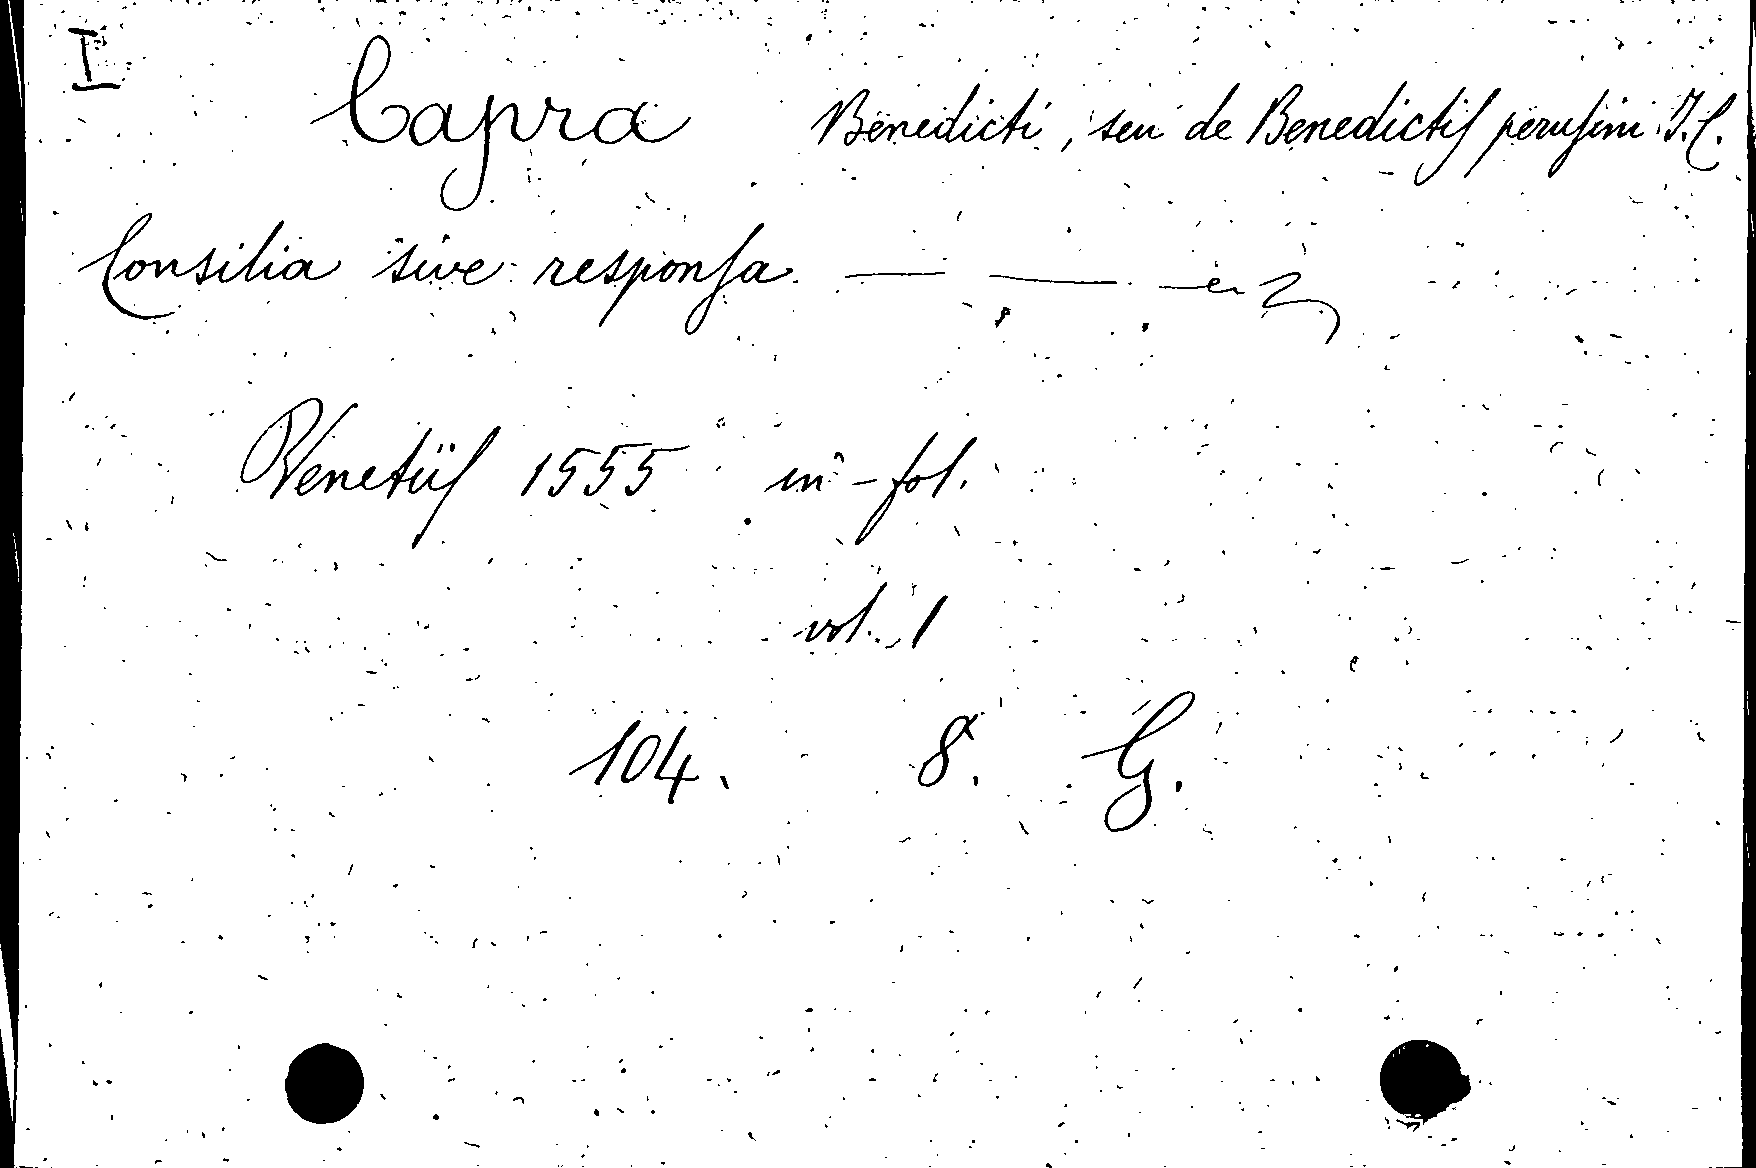 I
Capra Benedicti, seu de Benedictis perusini J.C.
Consilia sive responsa
Venetiis 1555 in-fol.
vol. 1
104. 8. G.